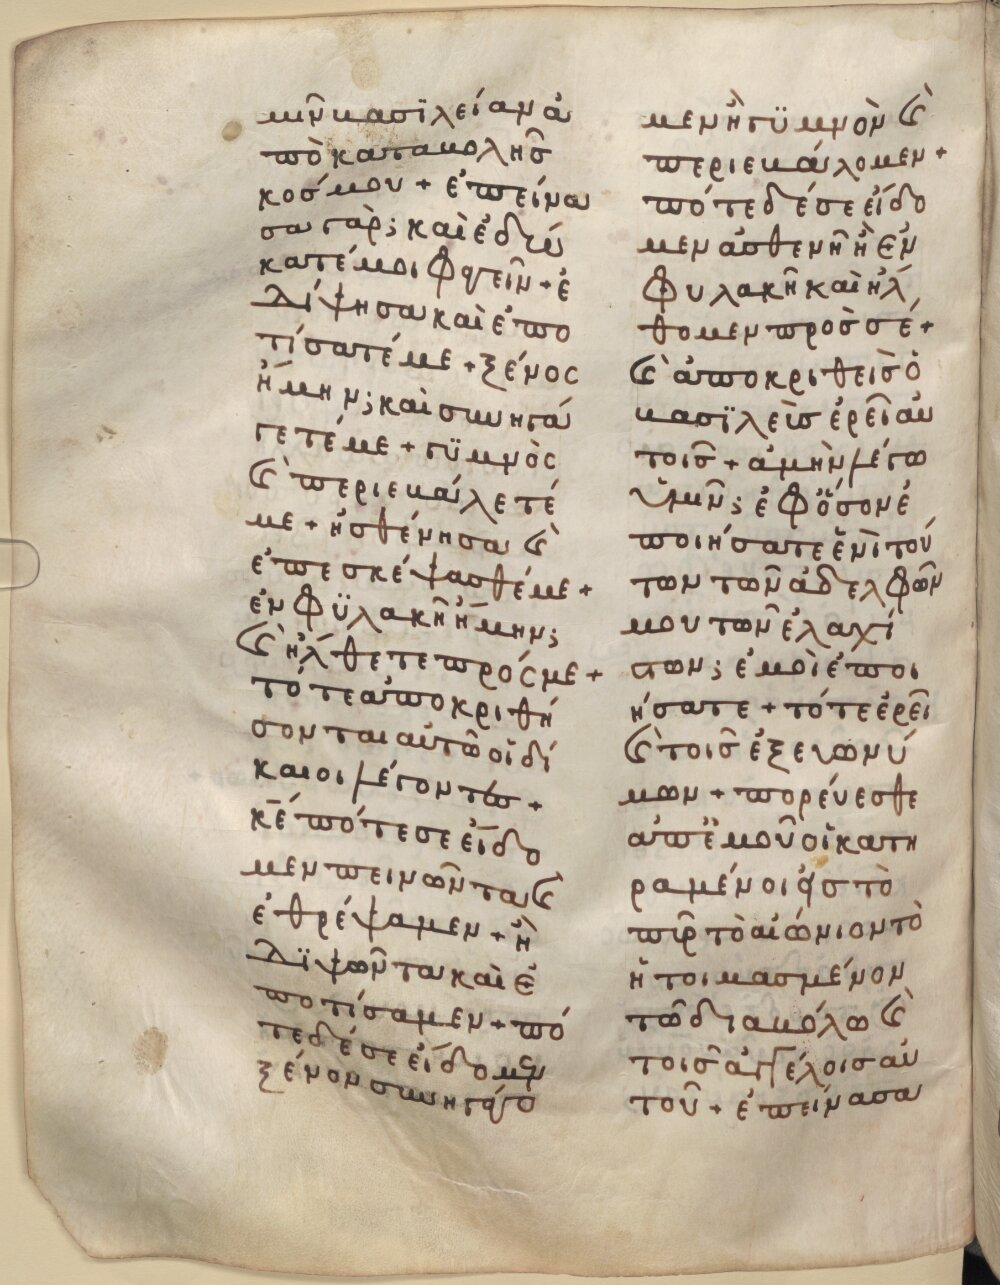 μῖν βασϊλείαν ἀ
πὸ καταβολῆσ
κόσμου + ἐπείνα
σα γὰρ; καὶ ἐδώ
κατέ μοι φαγεῖν + ἐ
δίψησα καὶ ἐπο
τίσατέ με + ξένος
ἤμην; καὶ συνηγά
γετέ με + γϋμνὸς
καὶ περιεβάλετέ
με + ἠσθένησα καὶ
ἐπεσκέψασθέ με +
ἐν φϋλακῆ ἤμην;
καὶ ἤλθετε πρός με +
τότε ἀποκριθή
σονται αὐτῶ οἱ δί
καιοι λέγοντεσ +
κε πότε σε εἴδο
μεν πεινῶντα καὶ
ἐθρέψαμεν + ἢ
διψῶντα καὶ ἐ
ποτίσαμεν + πό
τε δέ σε εἴδομεν
ξένον συνηγάγο
μεν ἢ γϋμνὸν καὶ
περιεβάλομεν +
πότε δέ σε εἴδο
μεν ἀσθενῆ ἢ ἐν
φυλακῆ καὶ ἤλ
θομεν πρὸσ σέ +
καὶ ἀποκριθεὶσ ὁ
βασϊλεὺσ ἐρεῖ αὐ
τοῖσ + ἀμὴν λέγω
ὑμῖν; ἐφ ὅσον ἐ
ποιήσατε ἑνὶ τού
των τῶν ἀδελφῶν
μου τῶν ἐλαχί
στων; ἐμοὶ ἐποι
ήσατε + τότε ἐρεῖ
καὶ τοῖσ ἐξ εὐωνύ
μων + πορεύεσθε
ἀπ ἐμοῦ οἱ κατη
ραμένοι εἰσ τὸ
πῦρ τὸ αἰώνιον τὸ
ἡτοιμασμένον
τῶ διαβόλω καὶ
τοῖσ ἀγγέλοισ αὐ
τοῦ + ἐπείνασα